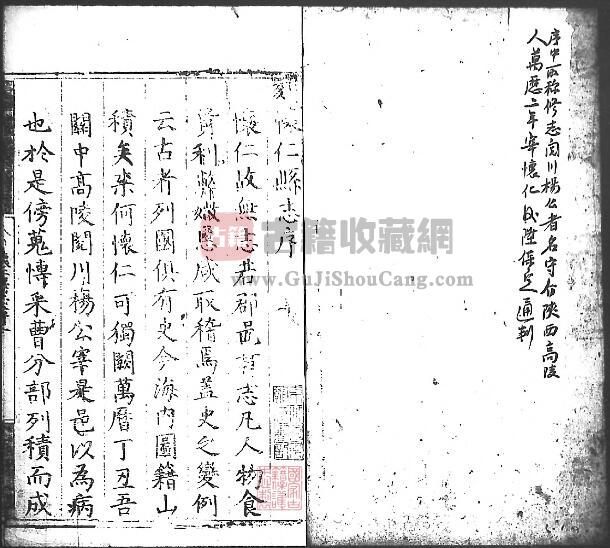 序中所称修志関川楊公者名守介陝西高陵
人萬歷二年宰懷仁後陞保定通判
懷仁縣志序
懷仁故無志君郡邑皆志凡人物食
貨利弊媺慝咸取稽焉蓋史之變例
云古者列國俱有史今海内圖籍山
積矣柰何懷仁可獨闕萬曆丁丑吾
關中高陵関川楊公宰是邑以為病
也於是傍蒐慱采曹分部列積而成
古籍
古籍收藏网
www.GuJiShouCang.com